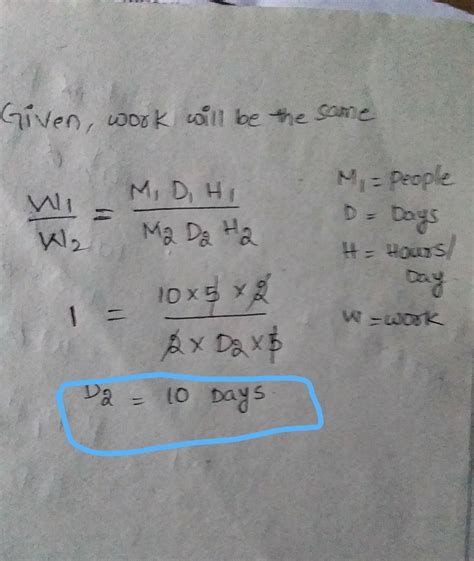 Given, work will be the same
W1/W2 = M1 D1 H1 / M2 D2 H2
M1 = People
D = Days
H = Hours/Day
W = work
1 = 10 × 5 × 2 / 2 × D2 × 5
D2 = 10 Days.